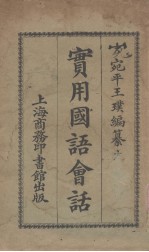 宛平王璞編纂
實用國語會話
上海商務印書館出版